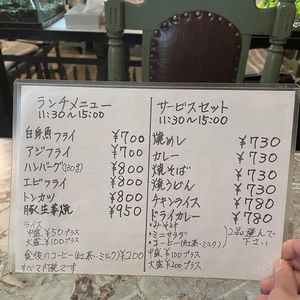 ランチメニュー
11:30～15:00
白身魚フライ ¥700
アジフライ ¥700
ハンバーグ(130g) ¥800
エビフライ ¥800
トンカツ ¥800
豚生姜焼 ¥950
ライス
中盛 ¥50プラス
大盛 ¥100プラス
食後のコーヒー(紅茶・ミルク) ¥200
すべて込です
サービスセット
11:30～15:00
焼めし ¥730
カレー ¥730
焼そば ¥730
焼うどん ¥730
チキンライス ¥780
ドライカレー ¥780
・みそ汁
・ミニサラダ
・コーヒー(紅茶・ミルク)
2品選んで下さい
中盛 ¥100プラス
大盛 ¥200プラス